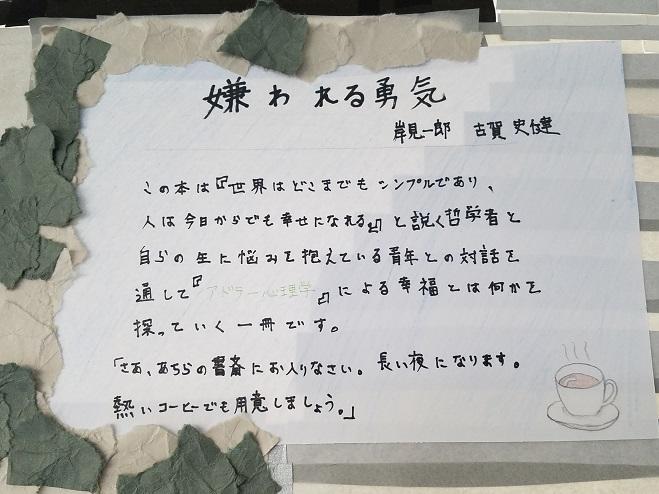 嫌われる勇気
岸見一郎 古賀史健
この本は『世界はどこまでもシンプルであり、
人は今日からでも幸せになれる』と説く哲学者と
自らの生に悩みを抱えている青年との対話を
通して『アドラー心理学』による幸福とは何かを
探っていく一冊です。
「さあ、あちらの書斎にお入りなさい。長い夜になります。
熱いコーヒーでも用意しましょう。」